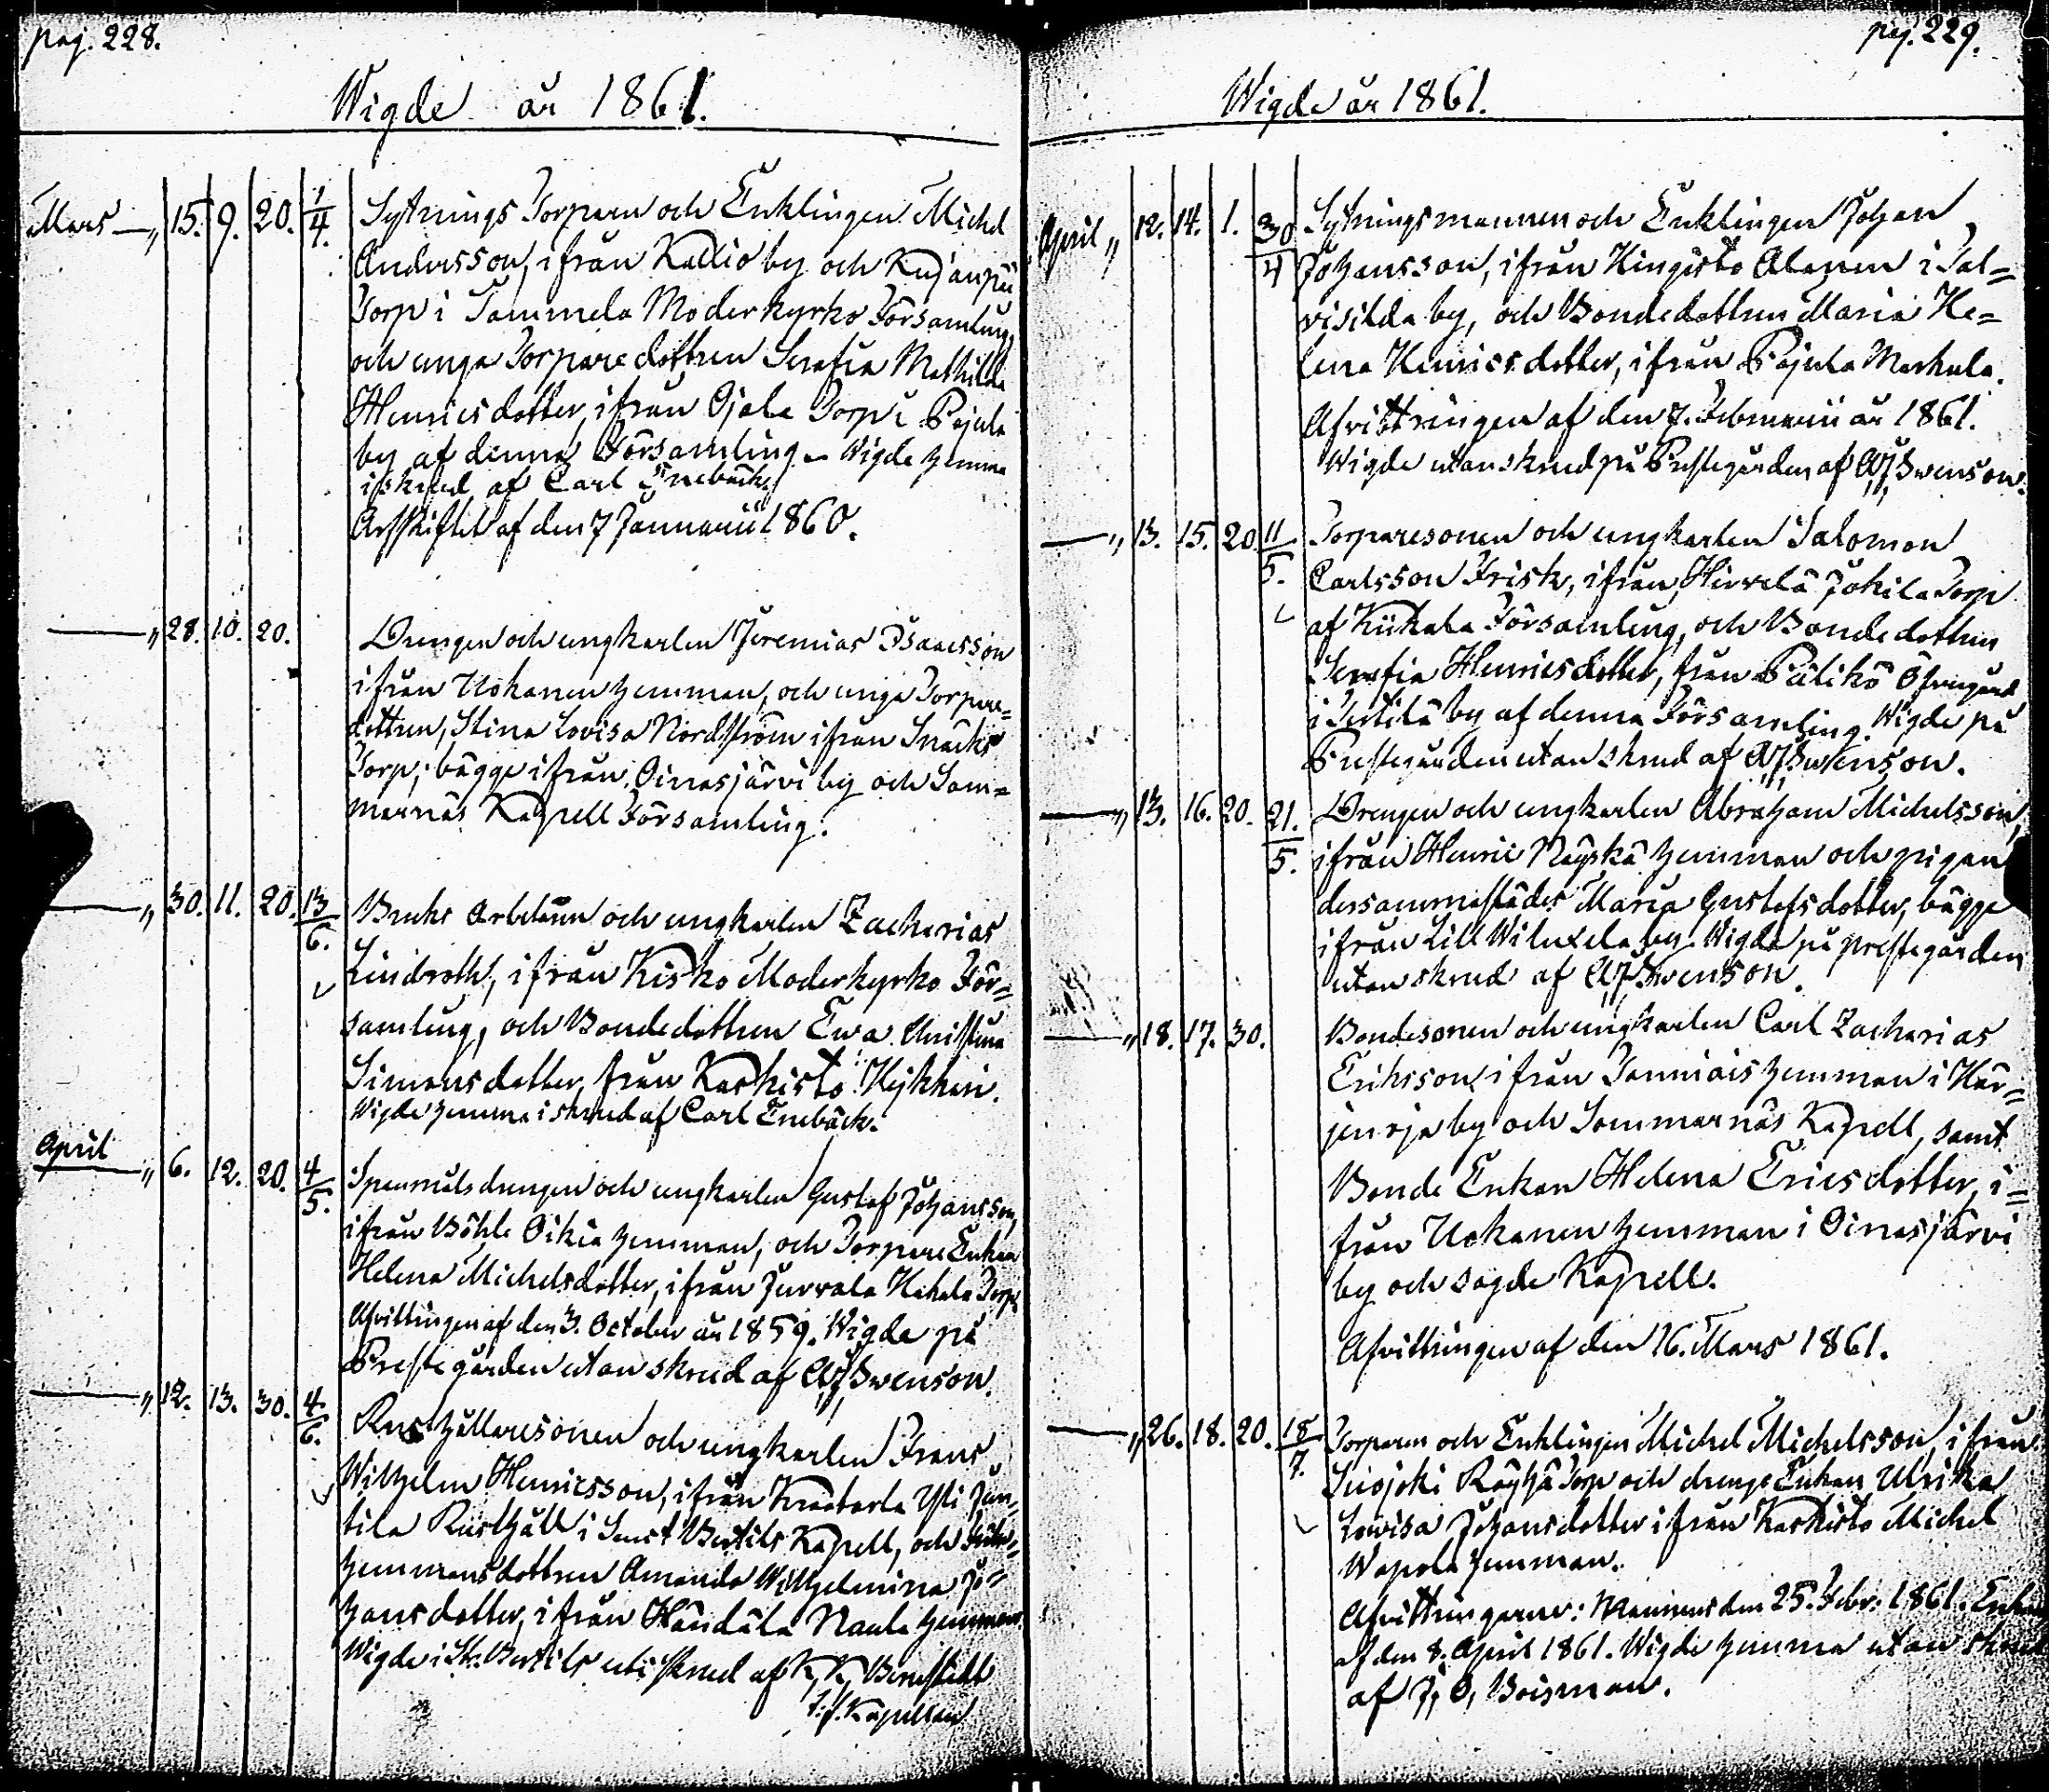 pag. 228.
Wigde år 1861.
Mars —„ 15. 9. 20. 1/4. Sytnings Torparen och Enklingen Michel
Andersson, ifrån Kallio by och Kujanpää
Torp i Tammela Moderkyrko Församling,
och unga Torpare dottren Serafia Mathilda
Henricsdotter, ifrån Ojala Torp i Pajula
by af denna Församling. Wigde hemma
i skrud af Carl Enebäck.
Arfskiftet af den 7 Januarii 1860.
—„ 28. 10. 20. Drengen och ungkarlen Jeremias Isacsson
ifrån Uokanen hemman, och unga Torpare=
dottren, Stina Lovisa Nordström ifrån Snäcks
Torp, bägge ifrån Oinasjärvi by och Som=
marnäs Kapell Församling.
—„ 30. 11. 20. 13/6. Bruks Arbetaren och ungkarlen Zacharias
Lindroth, ifrån Kisko Moderkyrko För=
samling, och Bondedottren Ewa Christina
Simonsdotter, från Kaskisto Hejkkari.
Wigde hemma i skrud af Carl Enebäck.
April —„ 6. 12. 20. 4/5. Spannmåls drengen och ungkarlen Gustaf Johansson,
ifrån Böhle Oikia hemman, och Torpare Enkan
Helena Michelsdotter, ifrån Juvvala Hakala Torp.
Afvittringen af den 3. October år 1859. Wigde på
Prestegården utan skrud af A. J. Swenson.
—„ 12. 13. 30. 4/6. Rusthållaresonen och ungkarlen Frans
Wilhelm Henricsson, ifrån Kraatarla Yli Jun=
tila Rusthåll i Sanct Bertils Kapell, och
hemmansdottren Amanda Wilhelmina Jo=
hansdotter, ifrån Händälä Naula hemman.
Wigde i St. Bertils uti skrud af K. K. Bondstedt
t. f. Kapellan
pag. 229.
Wigde år 1861.
April „ 12. 14. 1. 30/4 Sytningsmannen och Enklingen Johan
Johansson, ifrån Kingisto Alanen i Sal=
visilda by, och Bondedottren Maria He=
lena Henricsdotter, ifrån Pajula Markula.
Afvittringen af den 7. Februarii år 1861.
Wigde utan skrud på Prestegården af A. J. Swenson.
—„ 13. 15. 20. 11/5. Torparesonen och ungkarlen Salomon
Carlsson Frisk, ifrån Hirvelä Jokila Torp
af Kiikala Församling, och Bondedottren
Serafia Henricsdotter, från Pälikö Öfvergård
i Terttilä by af denna Församling. Wigde på
Prestegården utan skrud af A. J. Swenson.
—„ 13. 16. 20. 21./5. Drengen och ungkarlen Abraham Michelsson,
ifrån Henric Näyskä hemman och pigan
dersammastädes Maria Gustafsdotter, bägge
ifrån Lill Wiluxela by. Wigde på prestegården
utan skrud af A. J. Swenson.
—„ 18. 17. 30. Bondesonen och ungkarlen Carl Zacharias
Eriksson, ifrån Janniais hemman i Har=
jenoja by och Sommarnäs Kapell, samt
Bonde Enkan Helena Ericsdotter, i=
från Uokanen hemman i Oinasjärvi
by och sagde Kapell.
Afvittringen af den 16. Mars 1861.
—„ 26. 18. 20. 18/7. Torparen och Enklingen Michel Michelsson, ifrån
Suojoki Räyhä Torp och drenge Enkan Ulrika
Lovisa Johansdotter ifrån Kaskisto Michel
Wapola hemman.
Afvittringarne: Mannens den 25. Febr: 1861. Enkans
af den 8. April 1861. Wigde hemma utan skrud
af J. O. Boisman.